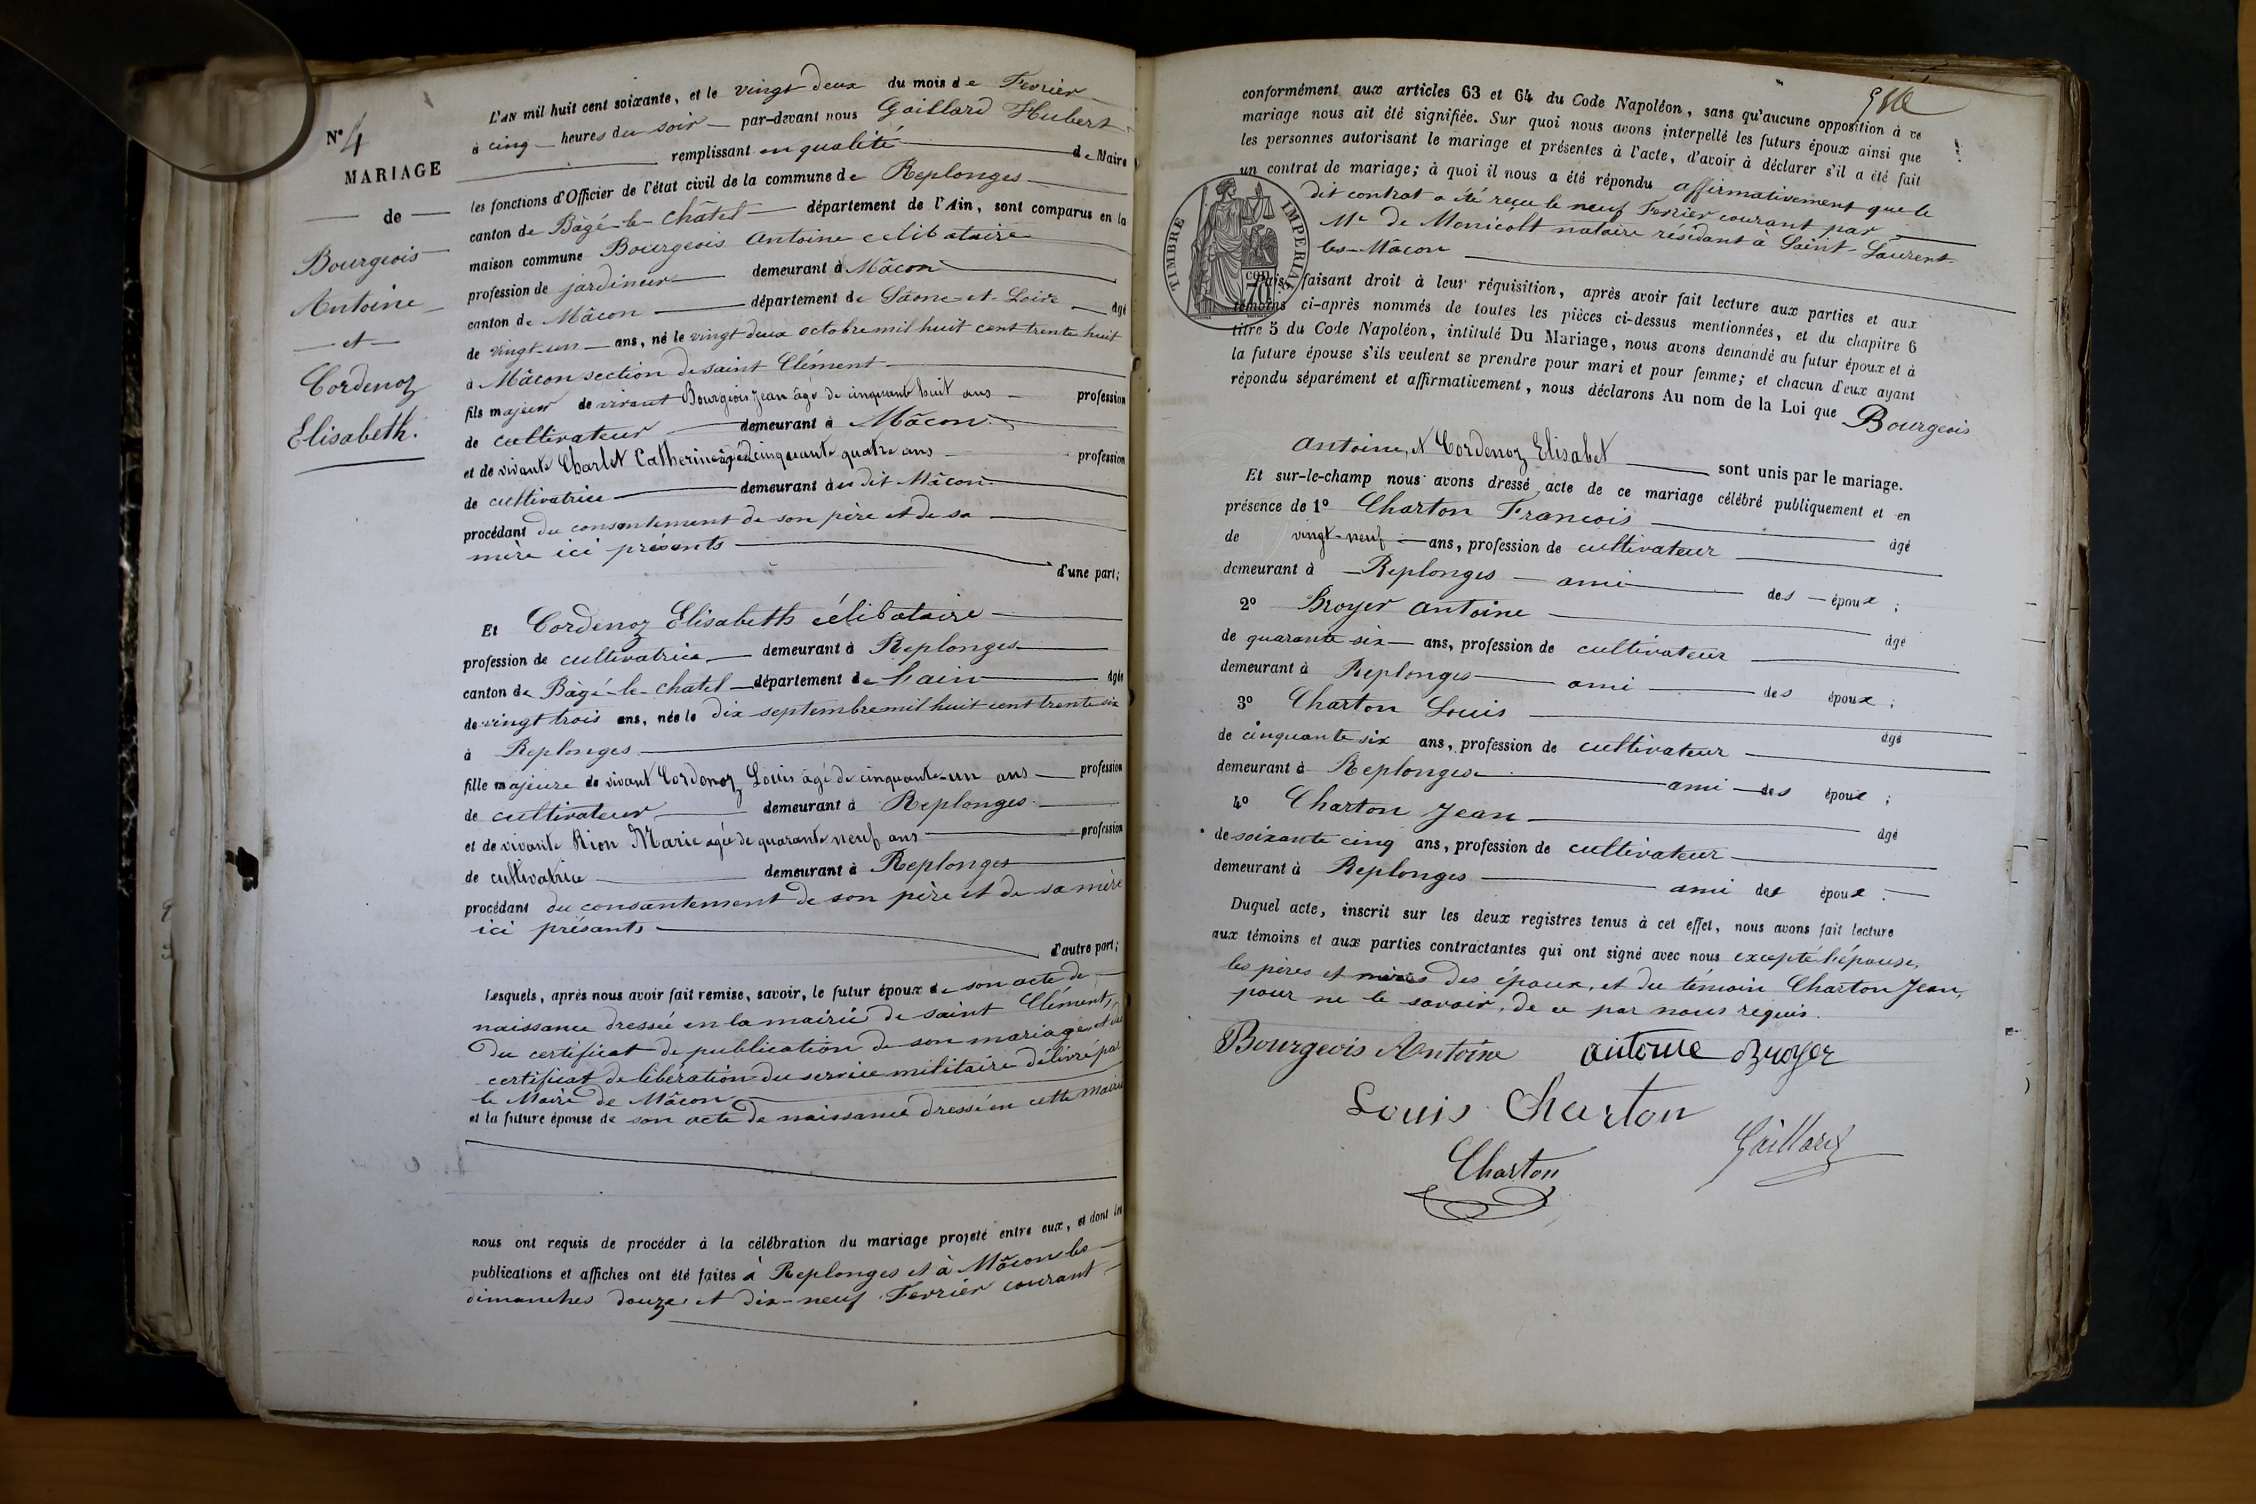 N° 4
MARIAGE
de
Bourgeois
Antoine
et
Cordenoz
Elisabeth.
L'AN mil huit cent soixante, et le vingt deux du mois de Fevrier
à cinq heures du soir par-devant nous Gaillard Hubert
remplissant en qualité de Maire
les fonctions d'Officier de l'état civil de la commune de Replonges
canton de Bâgé-le-Châtel département de l'Ain, sont comparus en la
maison commune Bourgeois Antoine celibataire
profession de jardinier demeurant à Mâcon
canton de Mâcon département de Saone-et-Loire âgé
de vingt-un ans, né le vingt deux octobre mil huit cent trente huit
à Mâcon section de saint Clément
fils majeur de vivant Bourgeois Jean âgé de cinquante huit ans profession
de cultivateur demeurant à Mâcon
et de vivante Charlet Catherine âgée cinquante quatre ans profession
de cultivatrice demeurant au dit Mâcon
procédant du consentement de son père et de sa
mère ici présents
d'une part;
Et Cordenoz Elisabeth célibataire
profession de cultivatrice demeurant à Replonges
canton de Bâgé-le-chatel département de l'ain âgée
de vingt trois ans, née le dix septembre mil huit cent trente six
à Replonges
fille majeure de vivant Cordenoz Louis âgé de cinquante-un ans profession
de cultivateur demeurant à Replonges
et de vivante Rion Marie agée de quarante neuf ans profession
de cultivatrice demeurant à Replonges
procédant du consantement de son père et de sa mère
ici présants
d'autre part;
Lesquels, après nous avoir fait remise, savoir, le futur époux de son acte de
naissance dressée en la mairie de saint Clément,
du certificat de publication de son mariage et du
certificat de libération du service militaire délivré par
le Maire de Mâcon
et la future épouse de son acte de naissance dressé en cette mairie
nous ont requis de procéder à la célébration du mariage projeté entre eux, et dont les
publications et affiches ont été faites à Replonges et à Mâcon les
dimanches douze et dix-neuf Fevrier courant
conformément aux articles 63 et 64 du Code Napoléon, sans qu'aucune opposition à ce
mariage nous ait été signifiée. Sur quoi nous avons interpellé les futurs époux ainsi que
les personnes autorisant le mariage et présentes à l'acte, d'avoir à déclarer s'il a été fait
un contrat de mariage; à quoi il nous a été répondu affirmativement que le
dit contrat a été reçu le neuf Fevrier courant par
Me de Monicolt notaire résidant à Saint-Laurent
les-Mâcon
TIMBRE IMPERIAL
70
Puis, faisant droit à leur réquisition, après avoir fait lecture aux parties et aux
témoins ci-après nommés de toutes les pièces ci-dessus mentionnées, et du chapitre 6
titre 5 du Code Napoléon, intitulé Du Mariage, nous avons demandé au futur époux et à
la future épouse s'ils veulent se prendre pour mari et pour femme; et chacun d'eux ayant
répondu séparément et affirmativement, nous déclarons Au nom de la Loi que Bourgeois
Antoine, et Cordenoz Elisabet sont unis par le mariage.
Et sur-le-champ nous avons dressé acte de ce mariage célébré publiquement et en
présence de 1° Charton Francois âgé
de vingt-neuf ans, profession de cultivateur
demeurant à Replonges ami des époux;
2° Broyer Antoine âgé
de quarante six ans, profession de cultivateur
demeurant à Replonges ami des époux;
3° Charton Louis âgé
de cinquante six ans, profession de cultivateur
demeurant à Replonges ami des époux;
4° Charton Jean âgé
de soixante cinq ans, profession de cultivateur
demeurant à Replonges ami des époux.
Duquel acte, inscrit sur les deux registres tenus à cet effet, nous avons fait lecture
aux témoins et aux parties contractantes qui ont signé avec nous excepté l'épouse,
les pères et mères des époux, et du témoin Charton Jean,
pour ne le savoir, de ce par nous requis.
Bourgeois Antoine antoine Broyer
Louis Charton
Gaillard
Charton